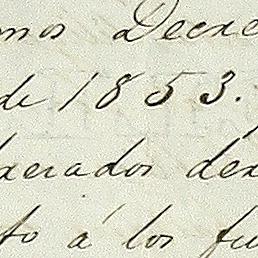 mos Decre
de 1853.
xerados dex
to á los fu